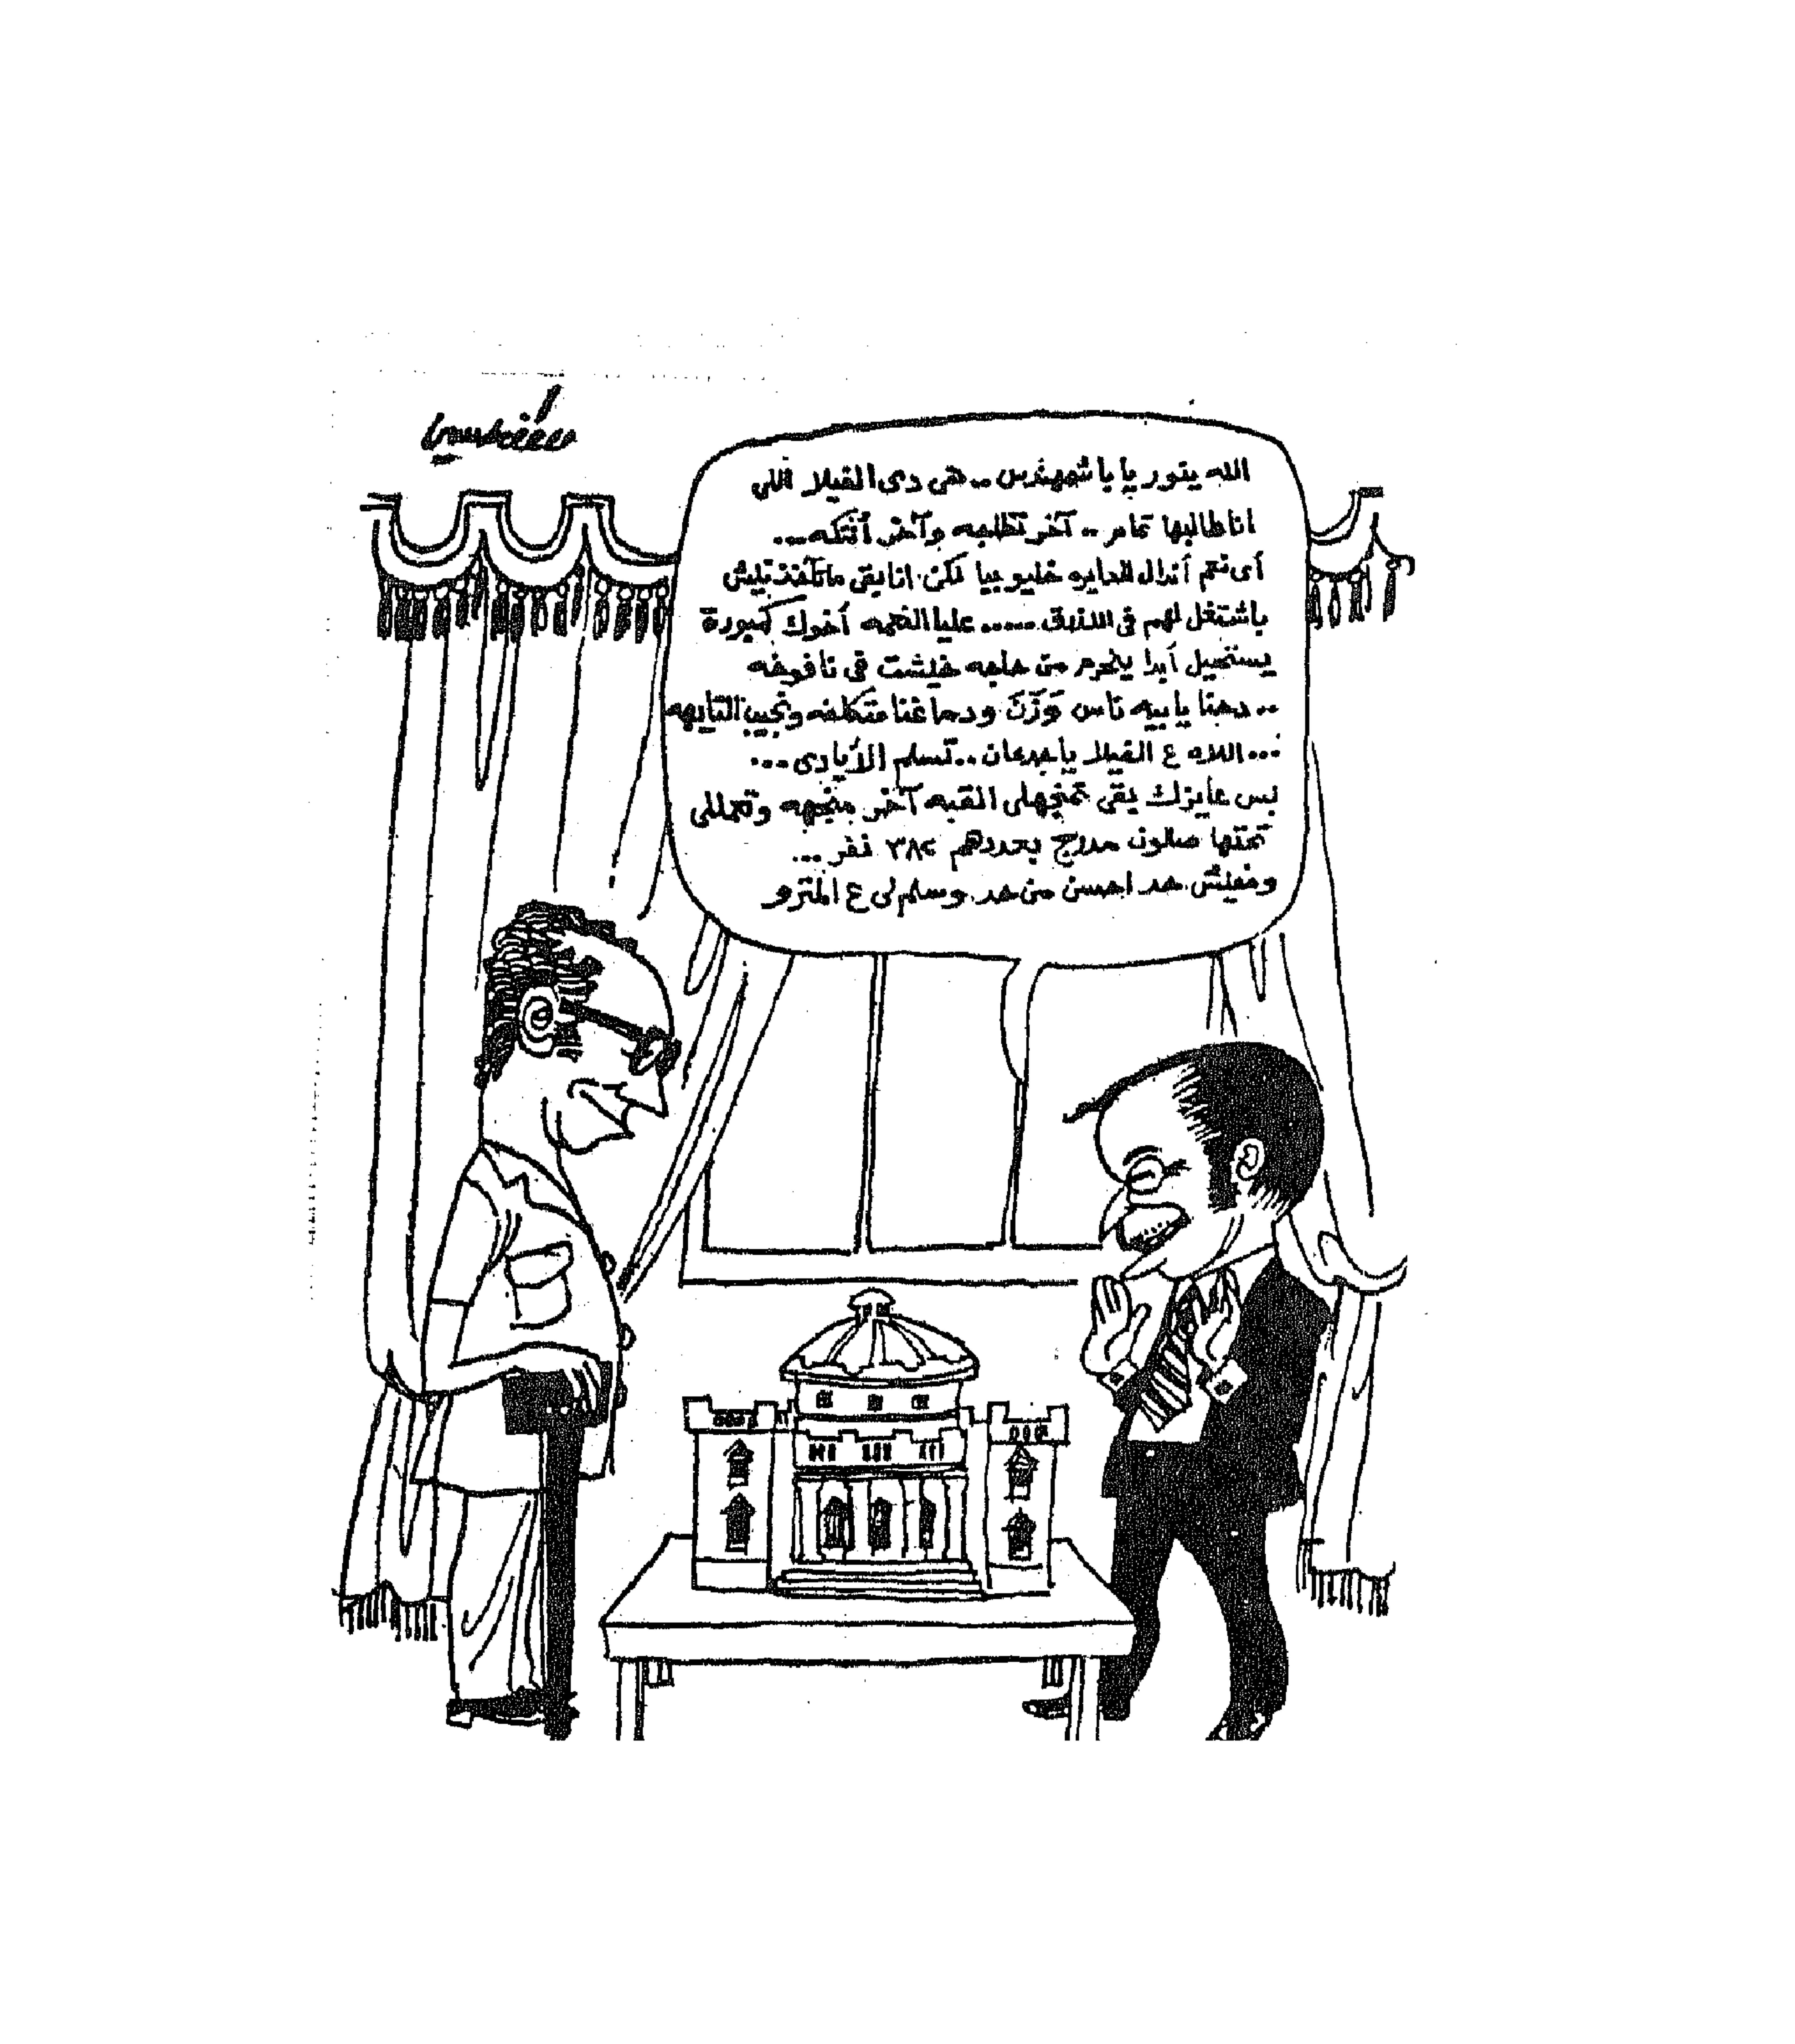 الله ينور يا باشمهندس .. هى دى الفيلا اللى
انا طالبها تمام .. آخر تظلجه وآخر أنتكه ...
أى نعم أندال الدايره خليو بيا لكن انا بقى
باشتغل لهم فى ..... عليا النعمه أخوك كمبورة
يستحيل أبدا يتحرم من حاجه خيشت فى نافوخه
.. دحنا يا بيه ناس ودماغنا متكلفه ونجيب التايهه
... اللاه ع الفيلا يا جدعان .. تسلم الأيادى ...
بس عايزك بقى تمنجهلى القبه آخر منجهه وتعمللى
تحتها صالون مدرج بعددهم ٣٨٢ نفر ...
ومفيش حد احسن من حد وسلم لى ع المترو